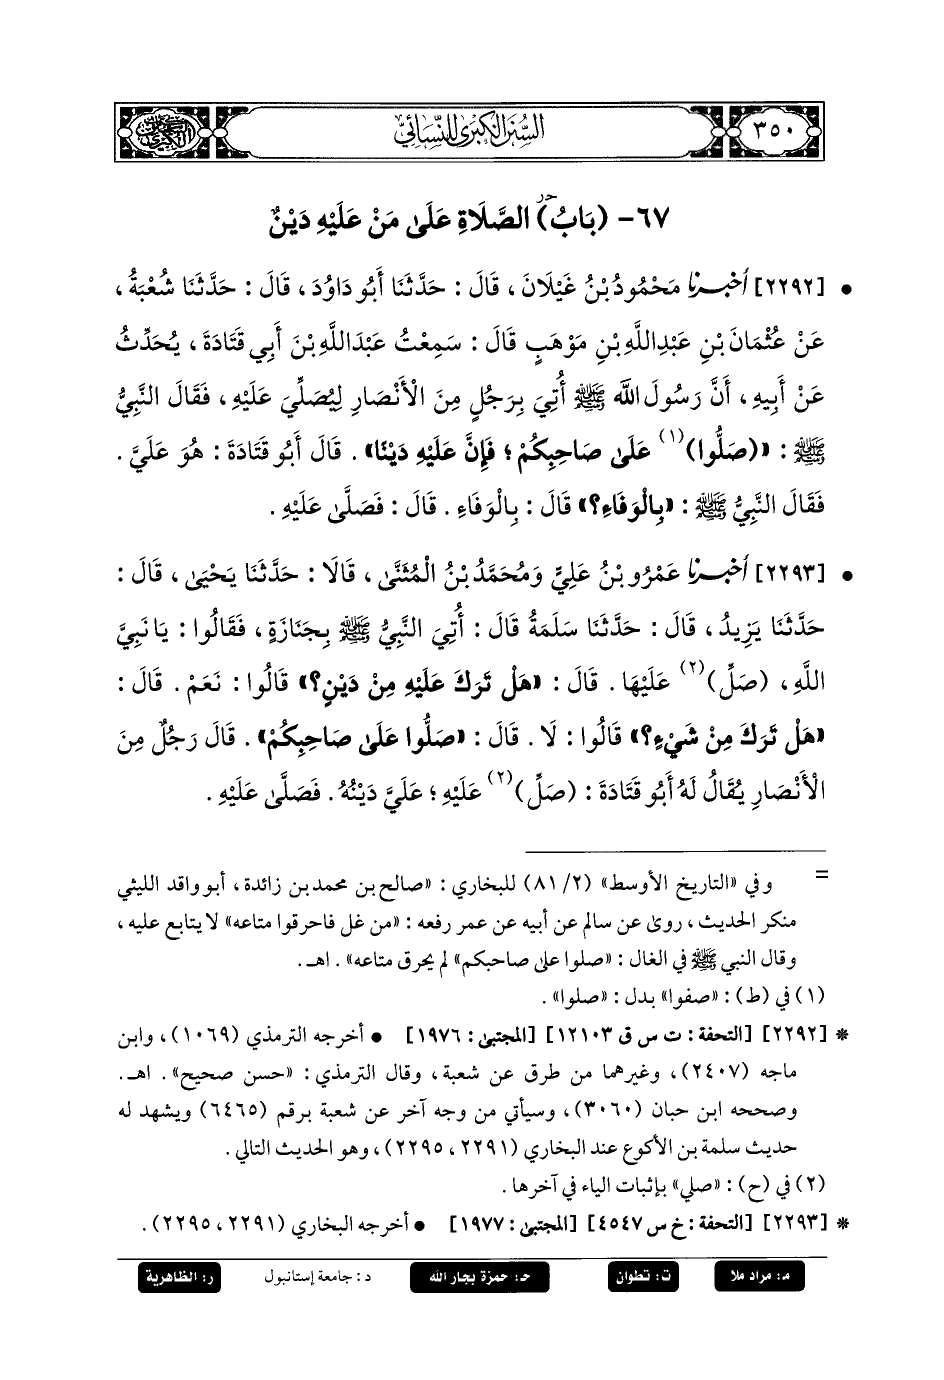 ٣٥٠
السُّنَنُ الكِبْرَى لِلنَّسَائِيِّ
٦٧- (بَابُ) الصَّلَاةِ عَلَىٰ مَنْ عَلَيْهِ دَيْنٌ
حر
• [٢٢٩٢] أَخْبَرَنَا مَحْمُودُ بْنُ غَيْلَانَ، قَالَ: حَدَّثَنَا أَبُو دَاوُدَ، قَالَ: حَدَّثَنَا شُعْبَةُ،
عَنْ عُثْمَانَ بْنِ عَبْدِاللَّهِ بْنِ مَوْهَبٍ قَالَ: سَمِعْتُ عَبْدَاللَّهِ بْنَ أَبِي قَتَادَةَ، يُحَدِّثُ
عَنْ أَبِيهِ، أَنَّ رَسُولَ اللَّه ﷺ أُتِيَ بِرَجُلٍ مِنَ الْأَنْصَارِ لِيُصَلِّيَ عَلَيْهِ، فَقَالَ النَّبِيُّ
ﷺ: «(صَلُّوا)(١) عَلَىٰ صَاحِبِكُمْ؛ فَإِنَّ عَلَيْهِ دَيْنًا». قَالَ أَبُو قَتَادَةَ: هُوَ عَلَيَّ.
فَقَالَ النَّبِيُّ ﷺ: «بِالْوَفَاءِ؟» قَالَ: بِالْوَفَاءِ. قَالَ: فَصَلَّىٰ عَلَيْهِ.
• [٢٢٩٣] أَخْبَرَنَا عَمْرُو بْنُ عَلِيٍّ وَمُحَمَّدُ بْنُ الْمُثَنَّىٰ، قَالَا: حَدَّثَنَا يَحْيَىٰ، قَالَ:
حَدَّثَنَا يَزِيدُ، قَالَ: حَدَّثَنَا سَلَمَةُ قَالَ: أُتِيَ النَّبِيُّ ﷺ بِجَنَازَةٍ، فَقَالُوا: يَا نَبِيَّ
اللَّهِ، (صَلِّ)(٢) عَلَيْهَا. قَالَ: «هَلْ تَرَكَ عَلَيْهِ مِنْ دَيْنٍ؟» قَالُوا: نَعَمْ. قَالَ:
«هَلْ تَرَكَ مِنْ شَيْءٍ؟» قَالُوا: لَا. قَالَ: «صَلُّوا عَلَىٰ صَاحِبِكُمْ». قَالَ رَجُلٌ مِنَ
الْأَنْصَارِ يُقَالُ لَهُ أَبُو قَتَادَةَ: (صَلِّ)(٢) عَلَيْهِ؛ عَلَيَّ دَيْنُهُ. فَصَلَّىٰ عَلَيْهِ.
= وفي «التاريخ الأوسط» (٢/ ٨١) للبخاري: «صالح بن محمد بن زائدة، أبو واقد الليثي
منكر الحديث، روىٰ عن سالم عن أبيه عن عمر رفعه: «من غل فاحرقوا متاعه» لا يتابع عليه،
وقال النبي ﷺ في الغال: «صلوا علىٰ صاحبكم» لم يحرق متاعه». اهـ.
(١) في (ط): «صفوا» بدل: «صلوا».
* [٢٢٩٢] [التحفة: ت س ق ١٢١٠٣] [المجتبىٰ: ١٩٧٦] • أخرجه الترمذي (١٠٦٩)، وابن
ماجه (٢٤٠٧)، وغيرهما من طرق عن شعبة، وقال الترمذي: «حسن صحيح». اهـ.
وصححه ابن حبان (٣٠٦٠)، وسيأتي من وجه آخر عن شعبة برقم (٦٤٦٥) ويشهد له
حديث سلمة بن الأكوع عند البخاري (٢٢٩١، ٢٢٩٥)، وهو الحديث التالي.
(٢) في (ح): «صلي» بإثبات الياء في آخرها.
* [٢٢٩٣] [التحفة: خ س ٤٥٤٧] [المجتبىٰ: ١٩٧٧] • أخرجه البخاري (٢٢٩١، ٢٢٩٥).
م: مراد ملا ت: تطوان حـ: حمزة بجار الله د: جامعة إستانبول ر: الظاهرية